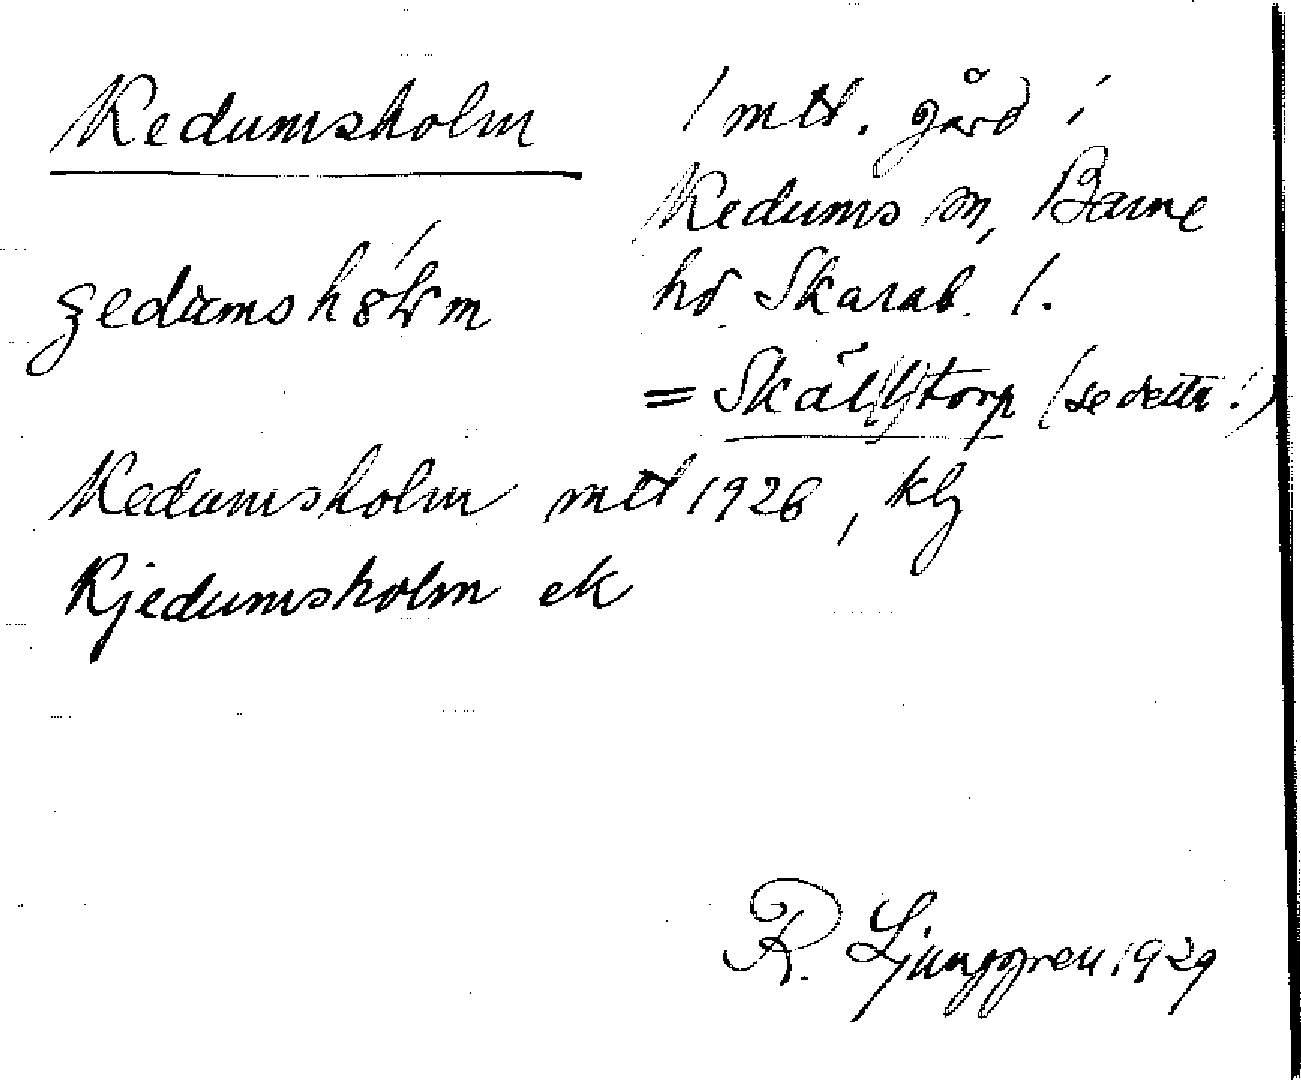 Kedumsholm
/ mtl. gård i
Kedums sn, Barne
hd. Skarab. /.
= Skältorp (se detta!)
Kedumsholm mtl 1926, kb
Kjedumsholm ek
R. Ljunggren 1929